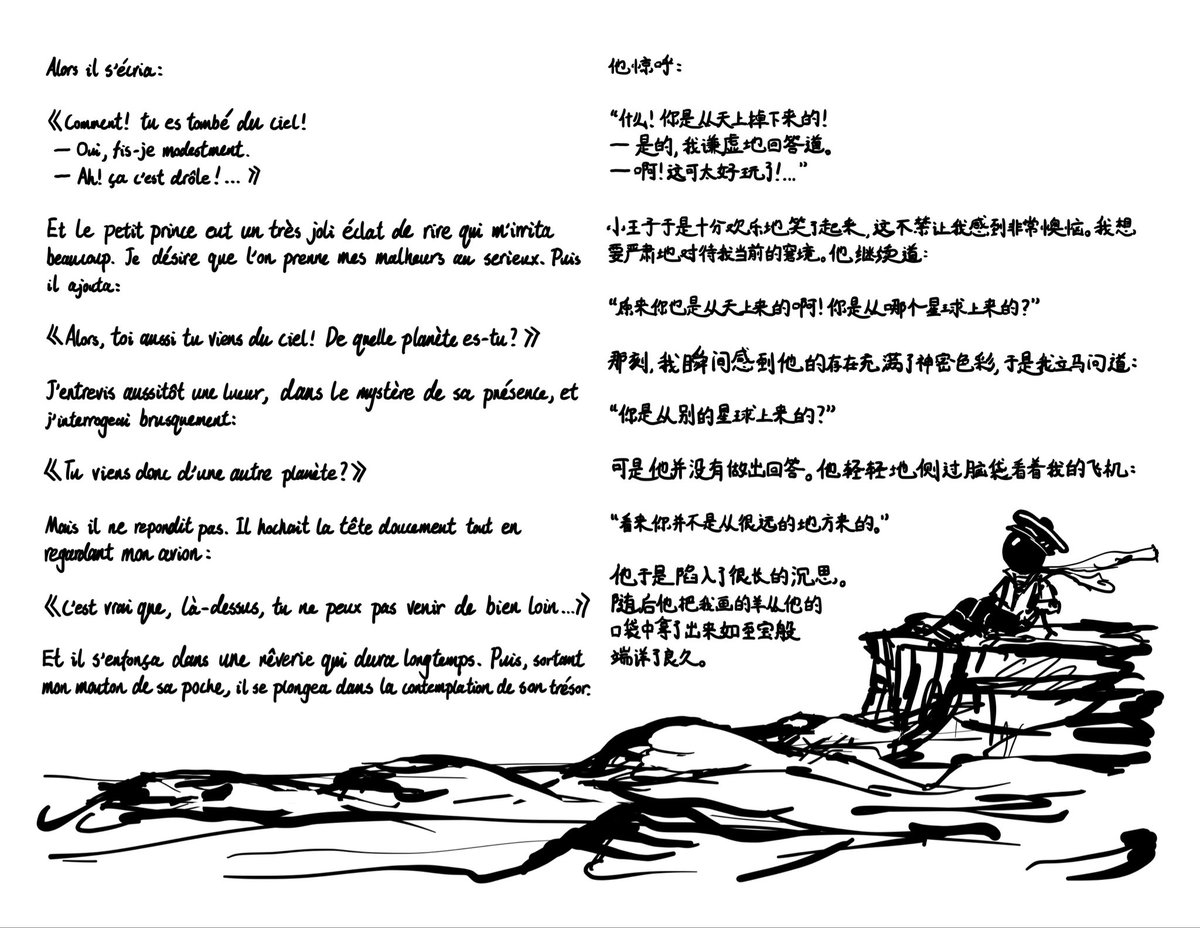 Alors il s'écria:
《Comment! tu es tombé du ciel!
— Oui, fis-je modestement.
— Ah! ça c'est drôle!... 》
Et le petit prince eut un très joli éclat de rire qui m'irrita
beaucoup. Je désire que l'on prenne mes malheurs au serieux. Puis
il ajouta:
《Alors, toi aussi tu viens du ciel! De quelle planète es-tu? 》
J'entrevis aussitôt une lueur, dans le mystère de sa présence, et
j'interrogeai brusquement:
《Tu viens donc d'une autre planète?》
Mais il ne repondit pas. Il hochait la tête doucement tout en
regardant mon avion:
《C'est vrai que, là-dessus, tu ne peux pas venir de bien loin...》
Et il s'enfonça dans une rêverie qui dura longtemps. Puis, sortant
mon mouton de sa poche, il se plongea dans la contemplation de son trésor.
他惊呼:
“什么!你是从天上掉下来的!
— 是的,我谦虚地回答道。
— 啊!这可太好玩了!...”
小王子于是十分欢乐地笑了起来,这不禁让我感到非常懊恼。我想
要严肃地对待我当前的窘境。他继续道:
“原来你也是从天上来的啊!你是从哪个星球上来的?”
那刻,我瞬间感到他的存在充满了神密色彩,于是我立马问道:
“你是从别的星球上来的?”
可是他并没有做出回答。他轻轻地侧过脑袋看着我的飞机:
“看来你并不是从很远的地方来的。”
他于是陷入了很长的沉思。
随后他把我画的羊从他的
口袋中拿了出来如至宝般
端详了良久。